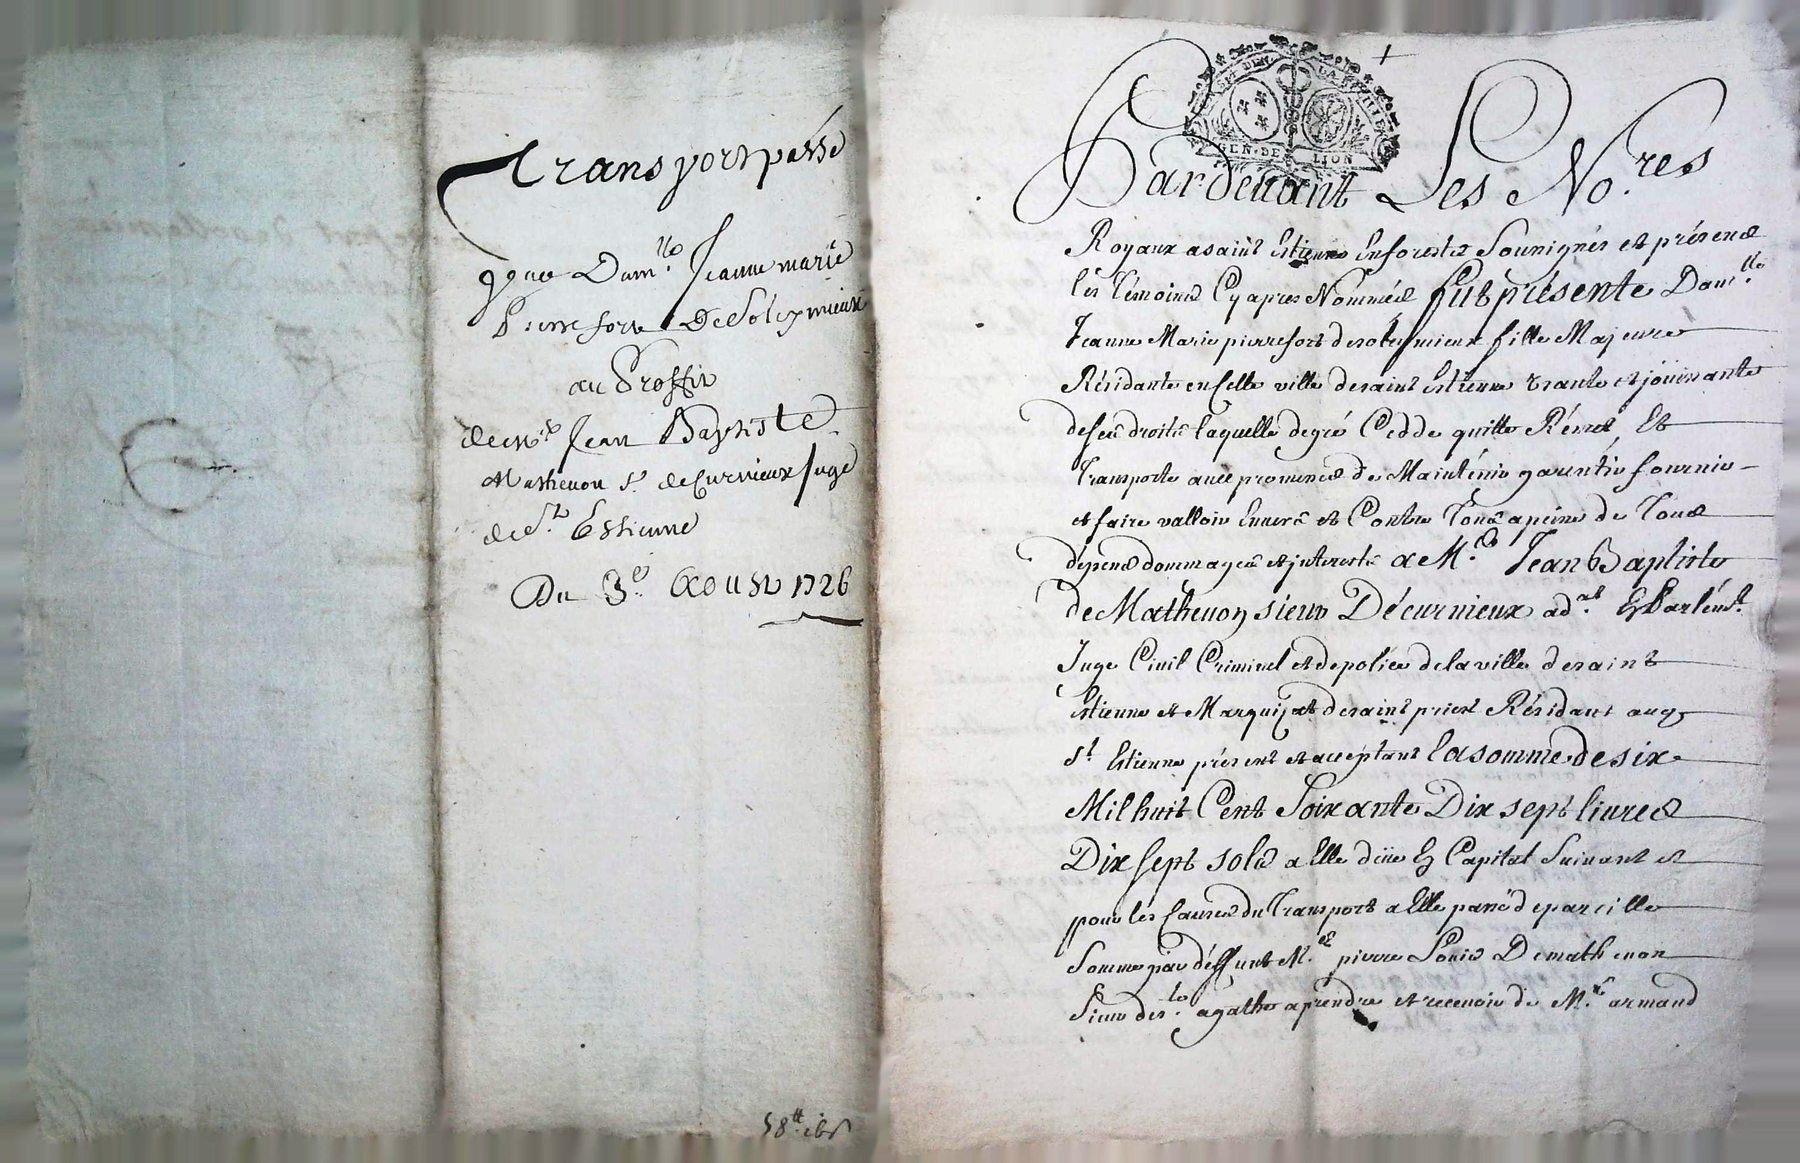 Transport passé
par Dam.lle Jeanne marie
Pierrefort De Soleymieux
au Proffit
de M.re Jean Baptiste
Mathevon S.r de Curnieux Juge
de S.t Estienne
Du 3.e Aoust 1726
58.tt
GEN. DE LION
Pardeuant Les No.res
Royaux a saint Estienne En forestz Sousignés et présence
les témoins Cy apres Nommés fut présente Dam.lle
Jeanne Marie pierrefort de soleymieux fille Majeure
Résidante en cette ville de saint Estienne usante et jouissante
de ses droits laquelle de gré Cedde quitte Rémet Et
Transporte avec promesse de Maintenir garantir fournir
et faire valloir Envers et Contre tous a peine de tous
dépens dommages et interests a M.re Jean Baptiste
de Mathevon sieur De curnieux ad.at En Parlem.t
Juge Civil Criminel et de police de la ville de saint
Estienne et Marquizat de saint priest Résidant aud.
S.t Estienne présent et acceptant la somme de six
Mil huit Cent Soixante Dix sept livres
Dix sept sols a Elle düe En Capital Suivant et
pour les Causes du Transport a Elle passé de pareille
Somme par déffunt M.re pierre Louis De mathevon
Sieur de s.te agathe a prendre et recevoir de M.r armand